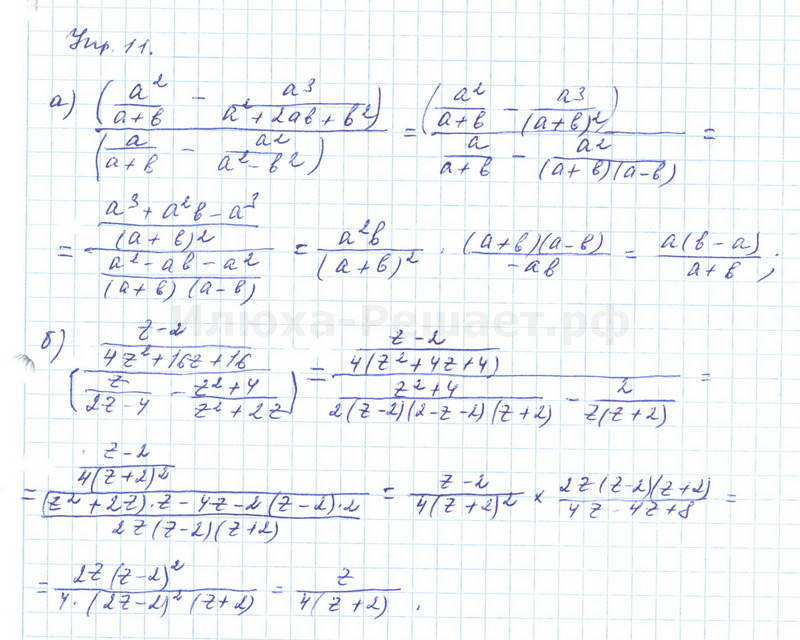 Упр. 11.
а) (a²/(a+b) − a³/(a²+2ab+b²)) / (a/(a+b) − a²/(a²−b²)) = (a²/(a+b) − a³/(a+b)²) / (a/(a+b) − a²/((a+b)(a−b))) =
= ((a³+a²b−a³)/(a+b)²) / ((a²−ab−a²)/((a+b)(a−b))) = a²b/(a+b)² · (a+b)(a−b)/(−ab) = a(b−a)/(a+b);
Илюха-Решает.рф
б) ((z−2)/(4z²+16z+16)) / (z/(2z−4) − (z²+4)/(z²+2z)) = ((z−2)/(4(z²+4z+4))) / ((z²+4)/(2(z−2)(2−z−2)(z+2)) − 2/(z(z+2))) =
= ((z−2)/(4(z+2)²)) / (((z²+2z)·z−4z−2(z−2)·2)/(2z(z−2)(z+2))) = (z−2)/(4(z+2)²) × 2z(z−2)(z+2)/(4z−4z+8) =
= 2z(z−2)²/(4·(2z−2)²(z+2)) = z/(4(z+2)).